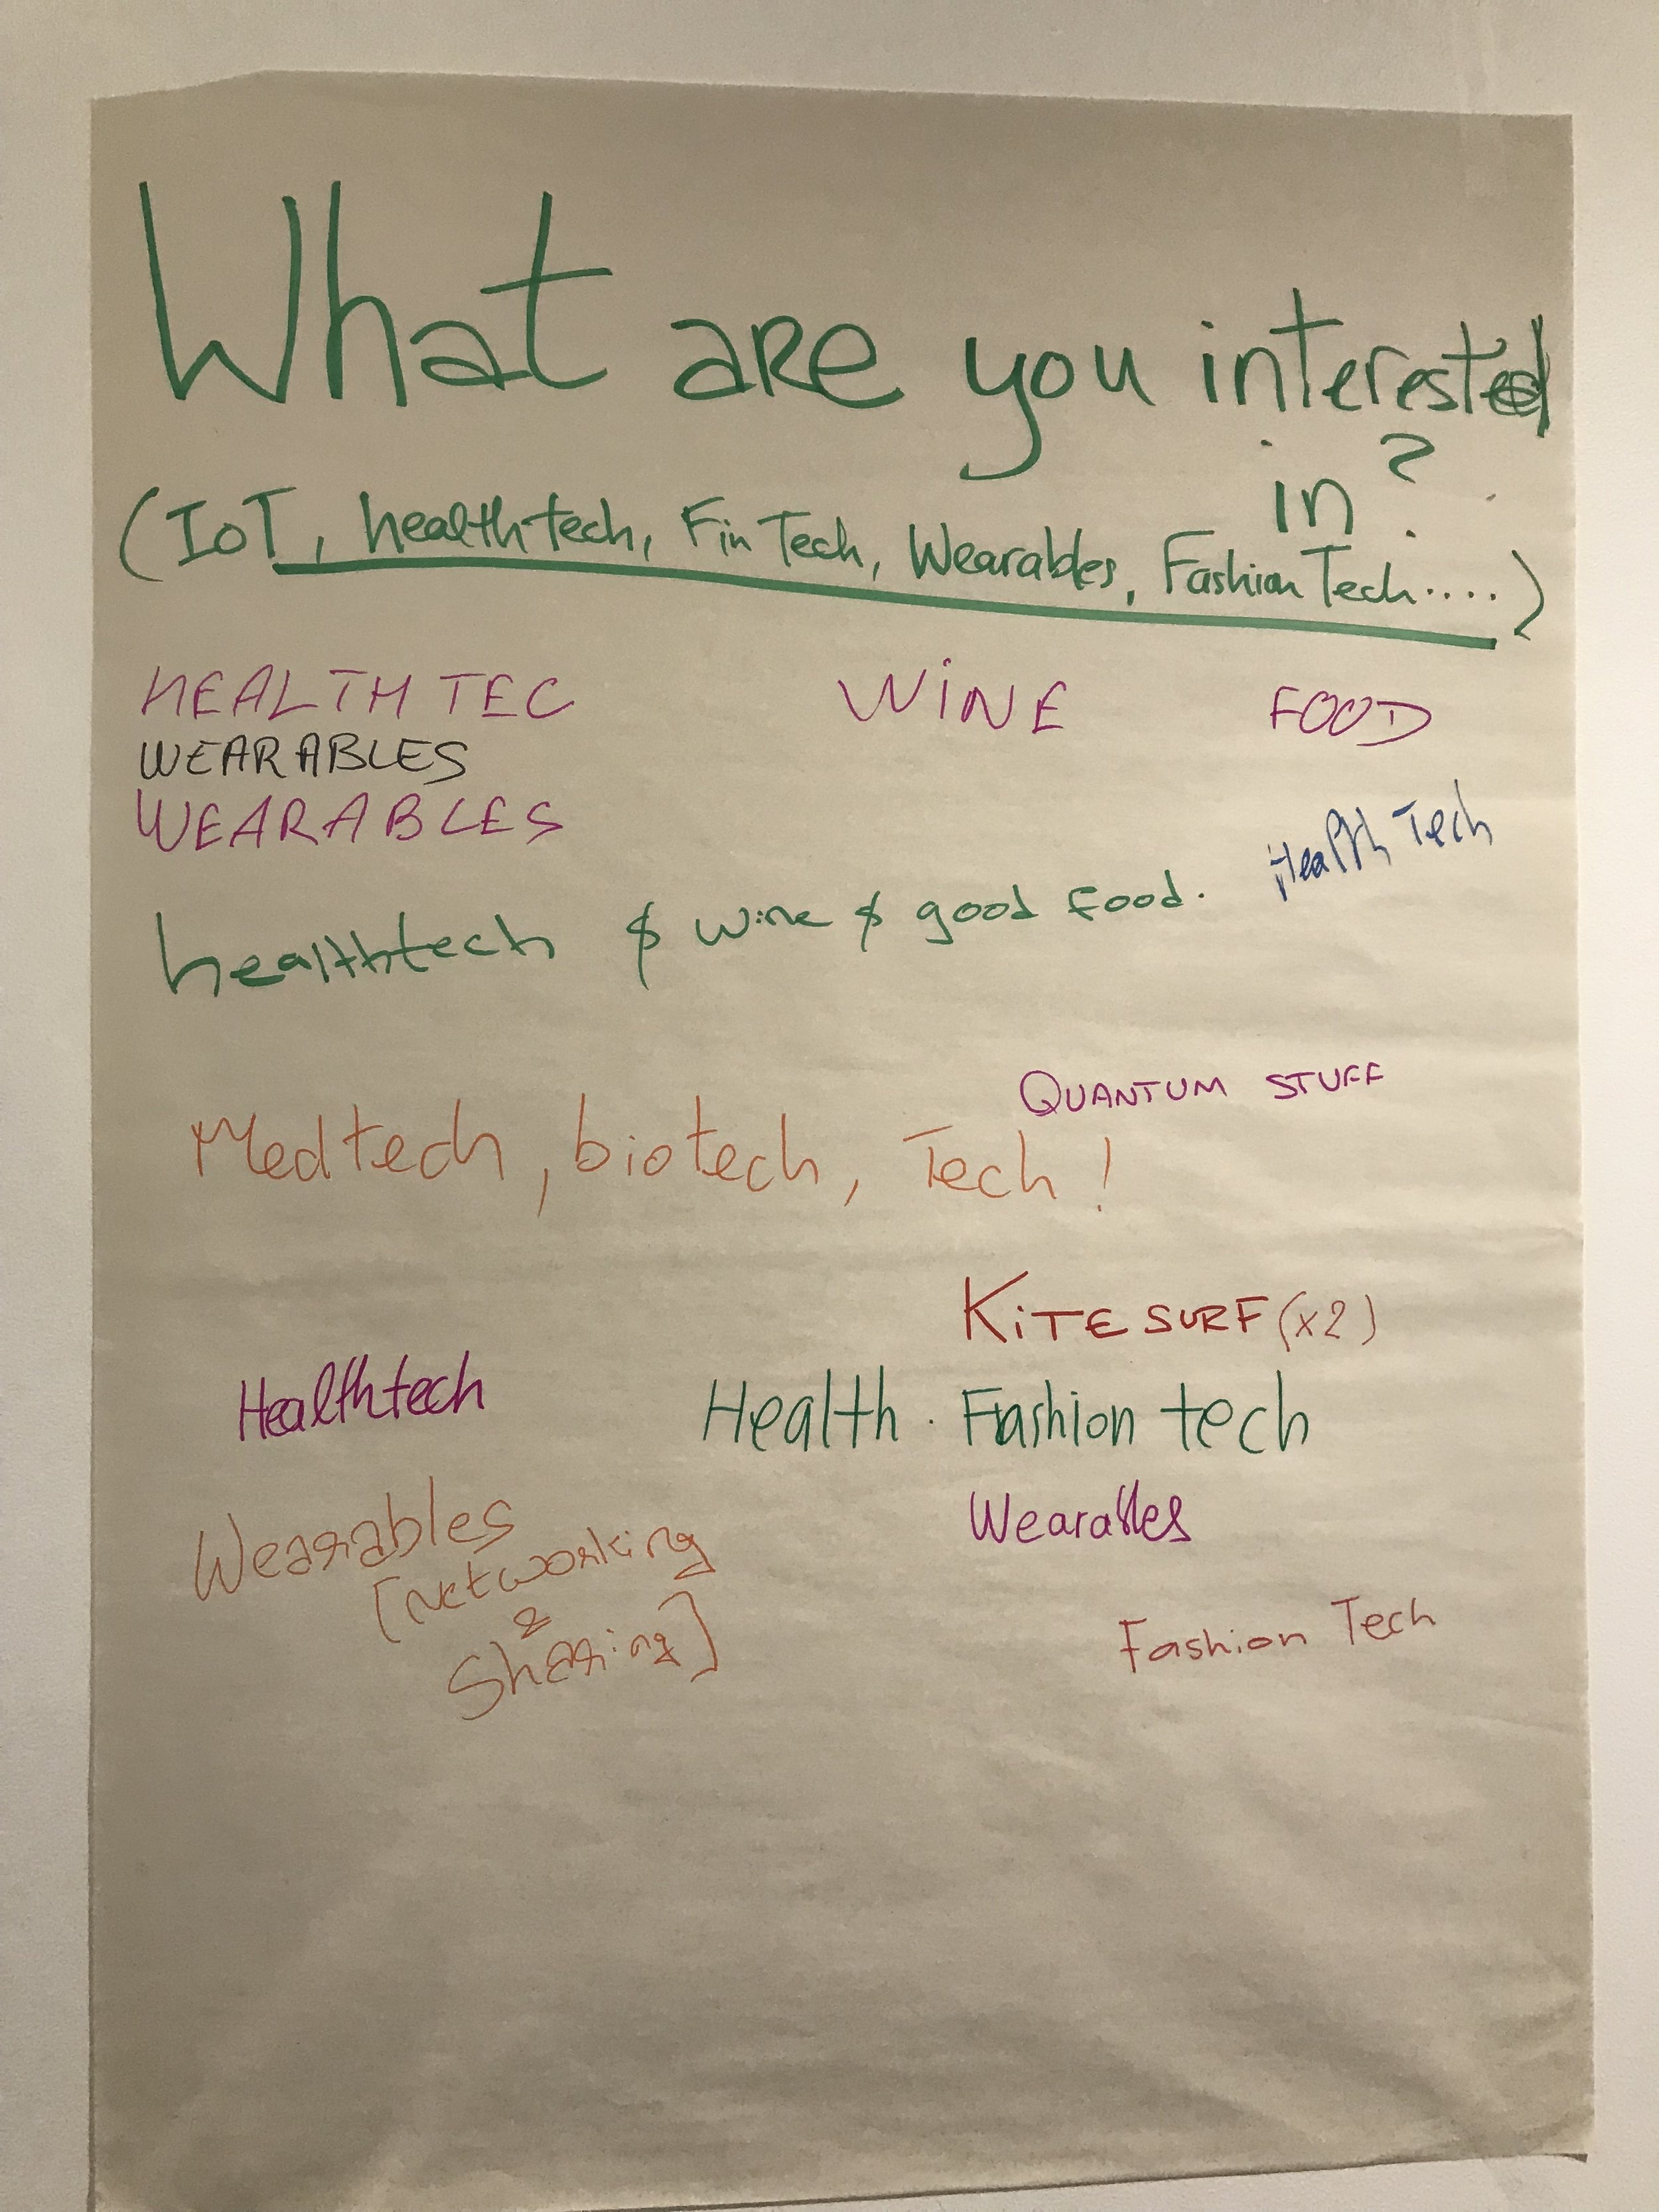 What are you interested
in?
(IoT, healthtech, FinTech, Wearables, Fashion Tech.....)
HEALTH TEC WINE FOOD
WEARABLES
WEARABLES
Health Tech
healthtech & wine & good food.
QUANTUM STUFF
Medtech, biotech, Tech!
KITE SURF (x2)
Healthtech Health. Fashion tech
Wearables
Wearables
[networking
&
Sharing]
Fashion Tech